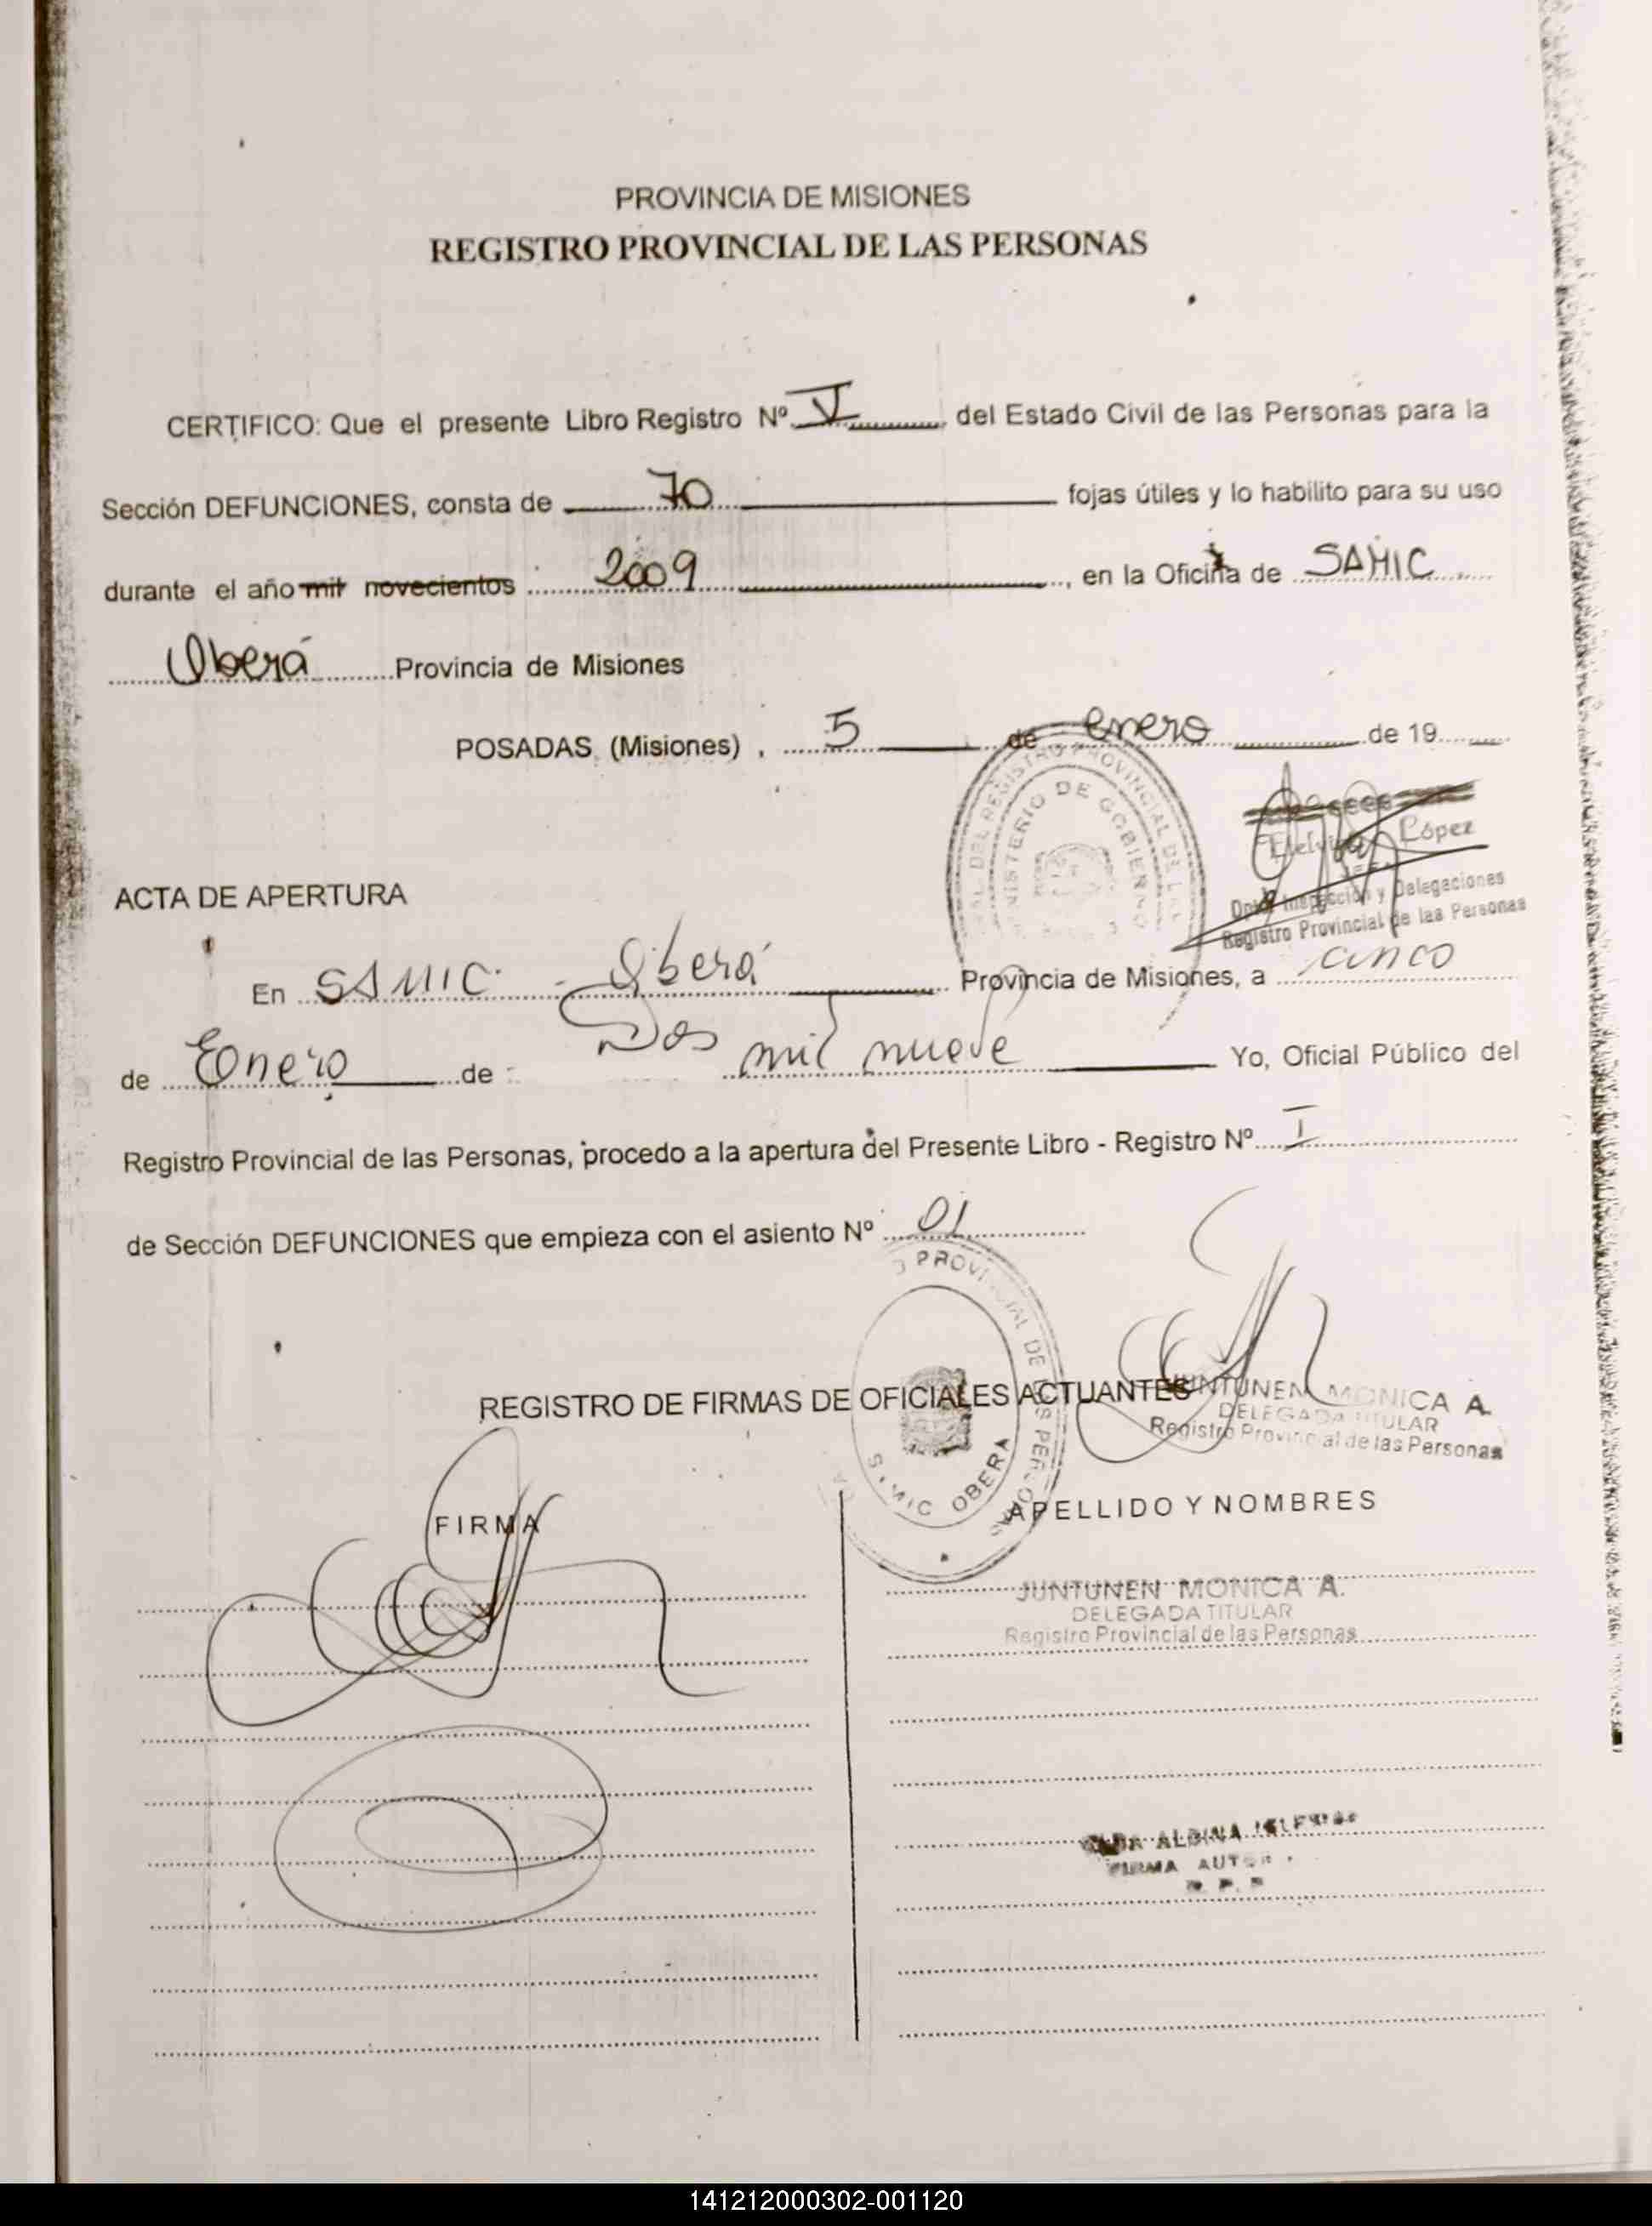 PROVINCIA DE MISIONES
REGISTRO PROVINCIAL DE LAS PERSONAS
CERTIFICO: Que el presente Libro Registro Nº V del Estado Civil de las Personas para la
Sección DEFUNCIONES, consta de 70 fojas útiles y lo habilito para su uso
durante el año mil novecientos 2009, en la Oficina de SAMIC
Oberá Provincia de Misiones
POSADAS (Misiones), 5 de enero de 19
López
Dpto Inspección y Delegaciones
Registro Provincial de las Personas
MINISTERIO DE GOBIERNO
ACTA DE APERTURA
En SAMIC - Oberá Provincia de Misiones, a cinco
de Enero de Dos mil nueve Yo, Oficial Público del
Registro Provincial de las Personas, procedo a la apertura del Presente Libro - Registro Nº I
de Sección DEFUNCIONES que empieza con el asiento Nº 01
SAMIC OBERA
REGISTRO DE FIRMAS DE OFICIALES ACTUANTES
JUNTUNEN MONICA A.
DELEGADA TITULAR
Registro Provincial de las Personas
FIRMA
APELLIDO Y NOMBRES
JUNTUNEN MONICA A.
DELEGADA TITULAR
Registro Provincial de las Personas
ALBINA
FIRMA
141212000302-001120